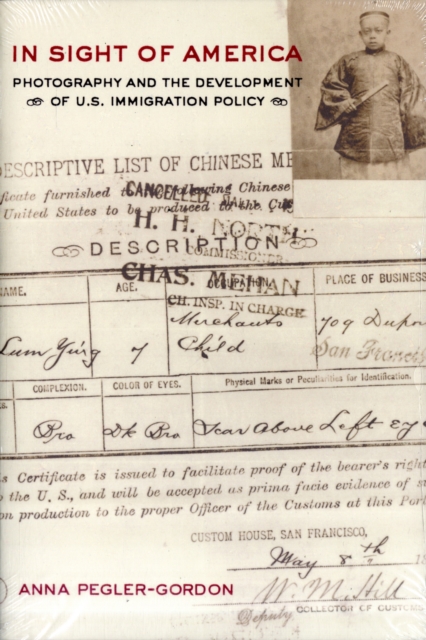 IN SIGHT OF AMERICA
PHOTOGRAPHY AND THE DEVELOPMENT
OF U.S. IMMIGRATION POLICY
DESCRIPTIVE LIST OF CHINESE ME
ficate furnished to the following Chinese
United States to be produced to the Cus
CANCELLED
H. H. NORTH
COMMISSIONER
DESCRIPTION
CHAS. MEHAN
CH. INSP. IN CHARGE
NAME. AGE. OCCUPATION. PLACE OF BUSINESS
Lum Ying 7 Merchants Child 709 Dupon
San Francis
COMPLEXION. COLOR OF EYES. Physical Marks or Peculiarities for Identification.
Bro Dk Bro Scar Above Left Ey
s Certificate is issued to facilitate proof of the bearer's right
the U. S., and will be accepted as prima facie evidence of s
on production to the proper Officer of the Customs at this Port
CUSTOM HOUSE, SAN FRANCISCO,
May 8th
ANNA PEGLER-GORDON
W. M. Hill
Deputy COLLECTOR OF CUSTOMS